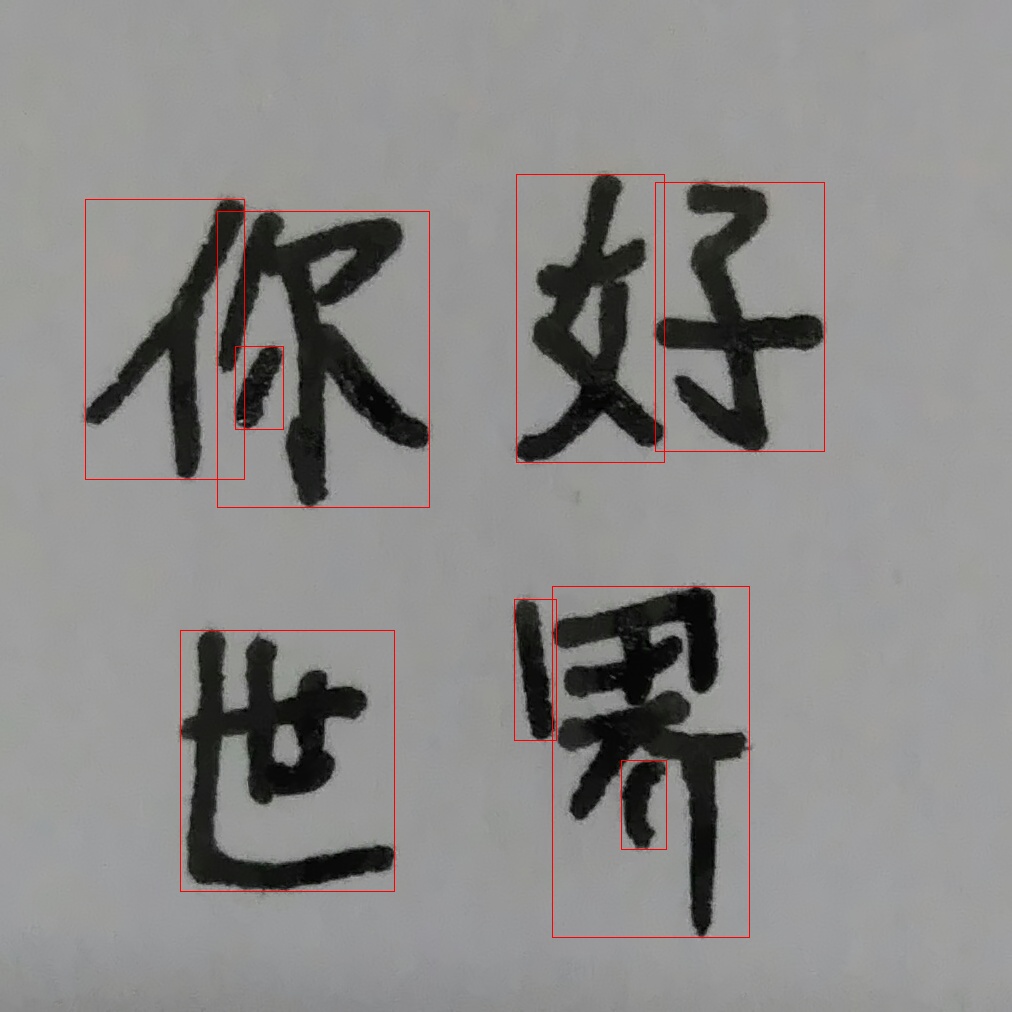 你好
世界